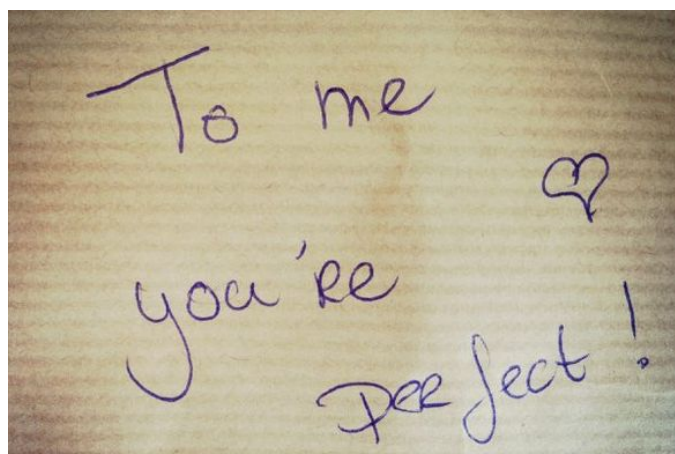 To me
you're
perfect!